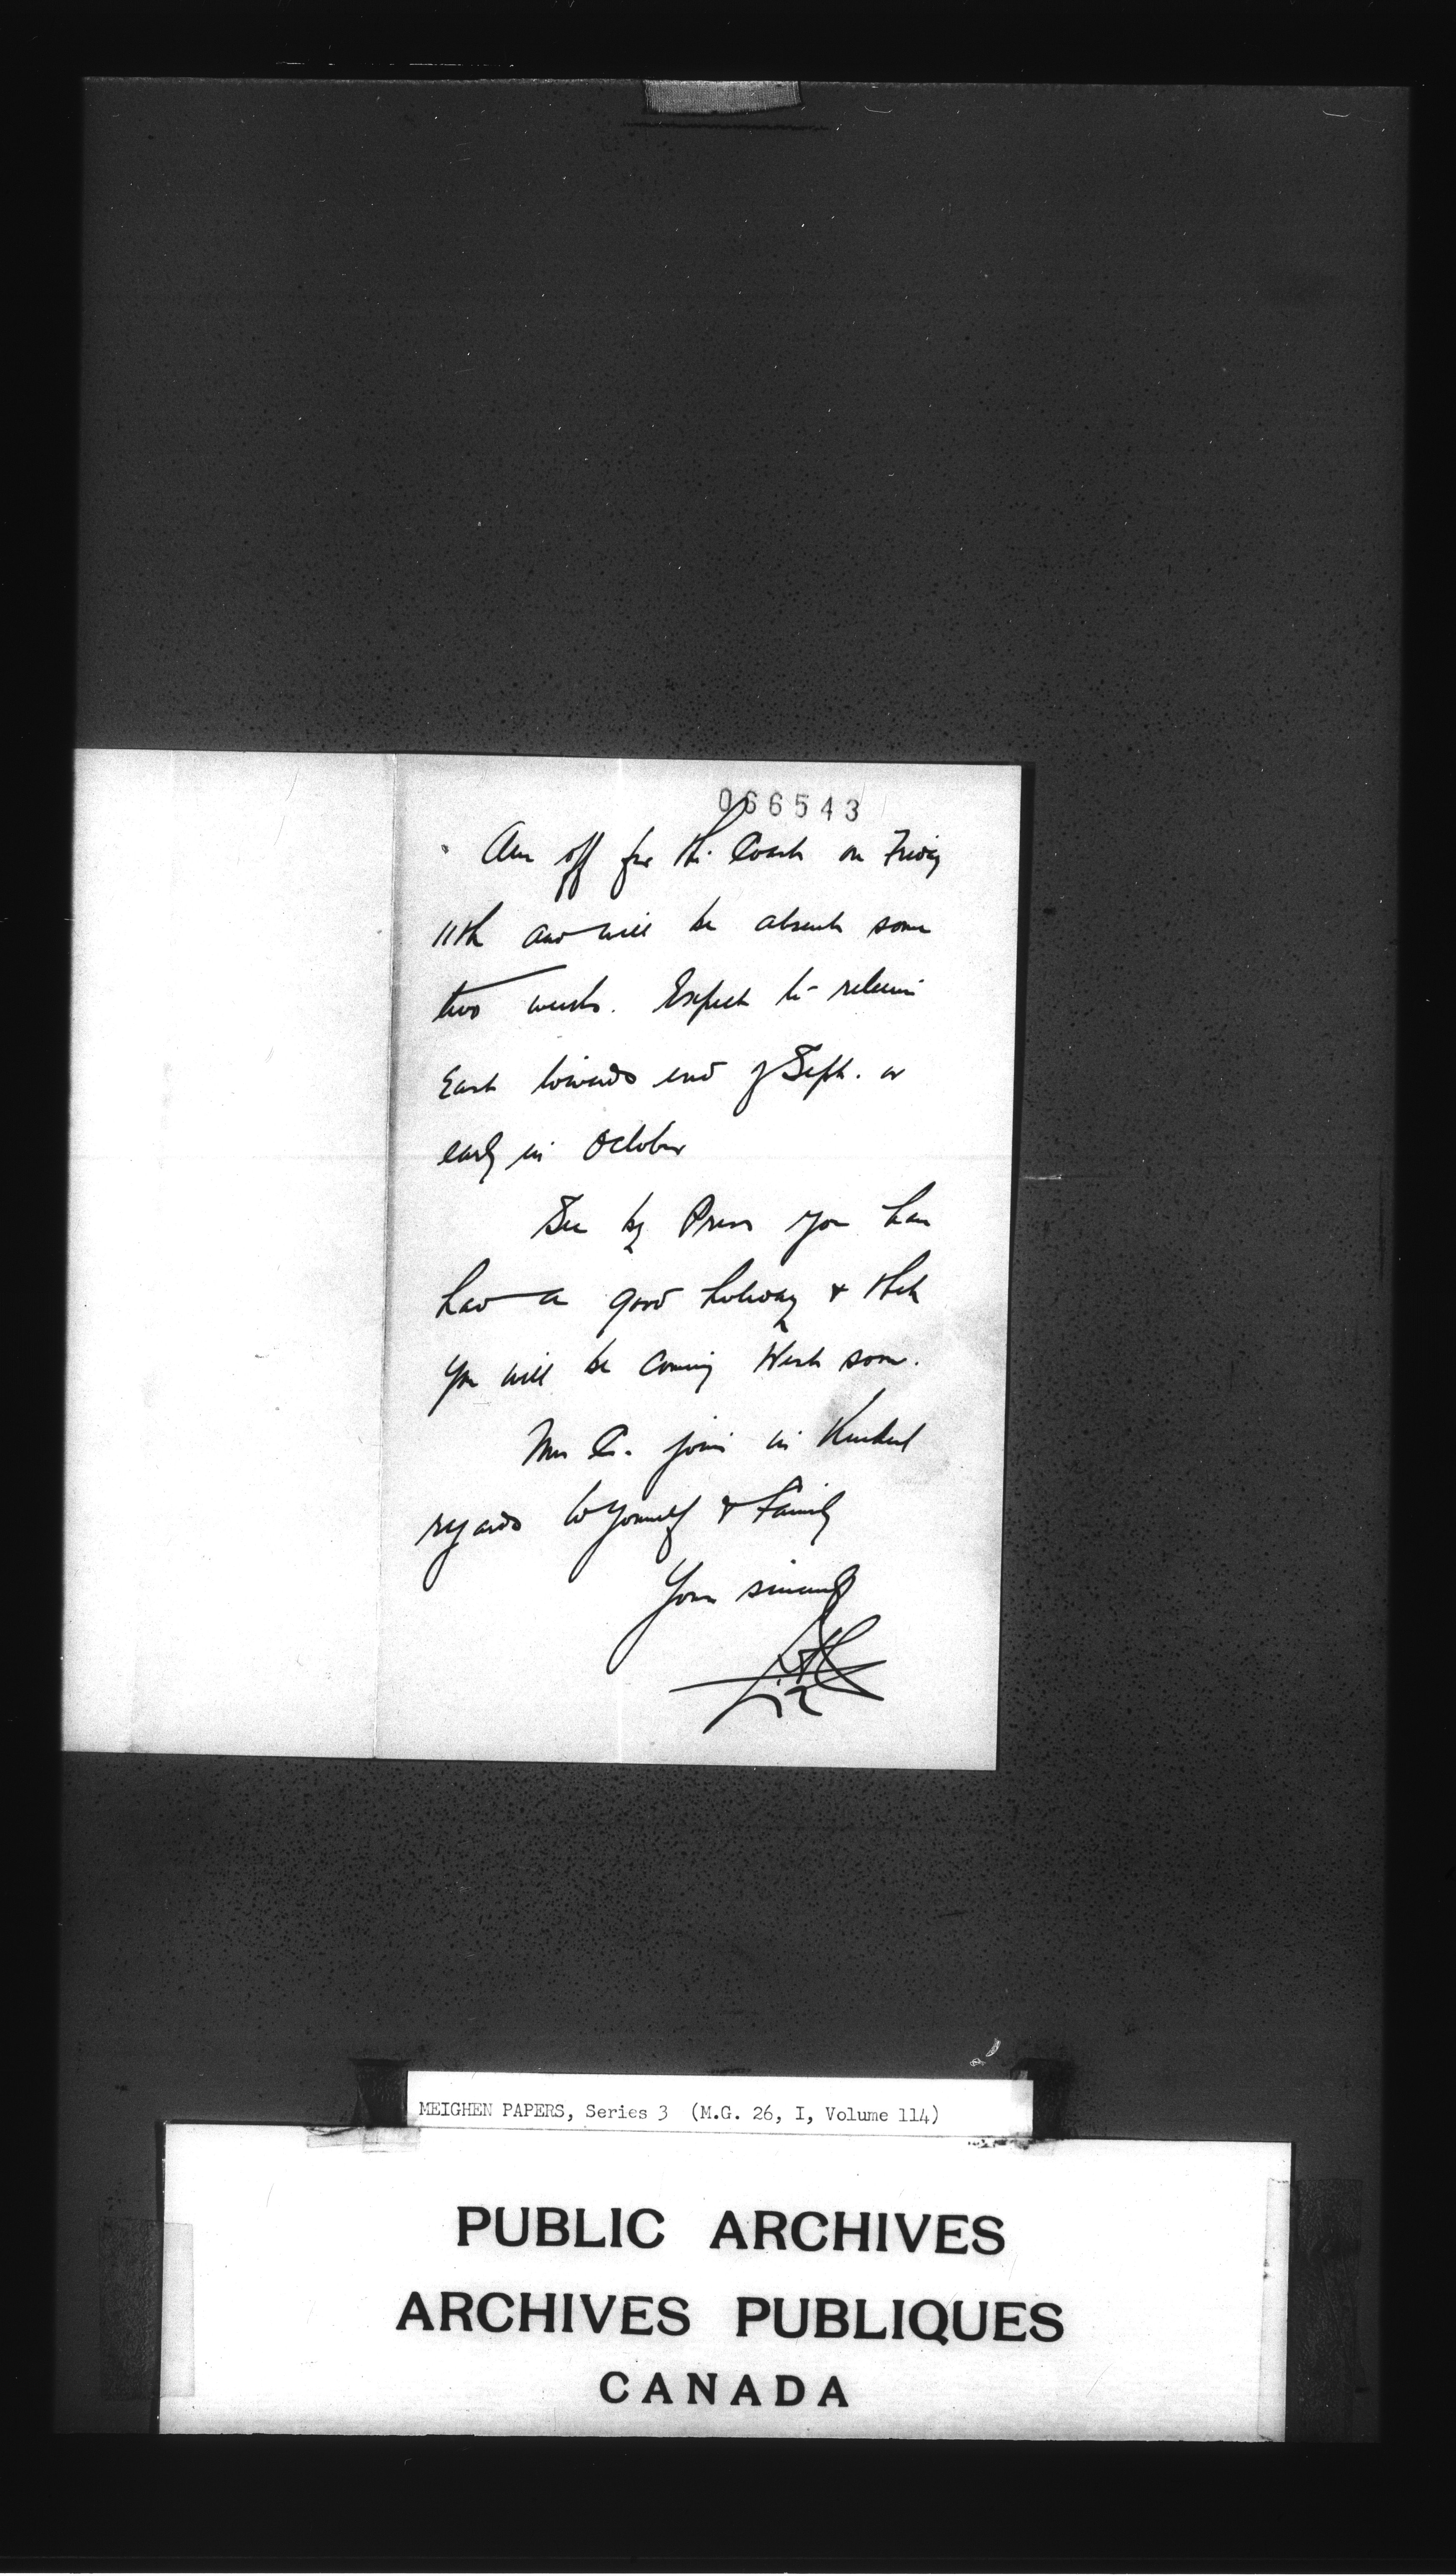 066543
Am off for the Coast on Friday
11th and will be absent some
two weeks. Expect to return
East towards end of Sept. or
early in October
See by Press you have
had a good holiday & that
you will be coming West soon.
Mrs C. joins in Kindest
regards to yourself & Family
Yours sincerely
MEIGHEN PAPERS, Series 3 (M.G. 26, I, Volume 114)
PUBLIC ARCHIVES
ARCHIVES PUBLIQUES
CANADA